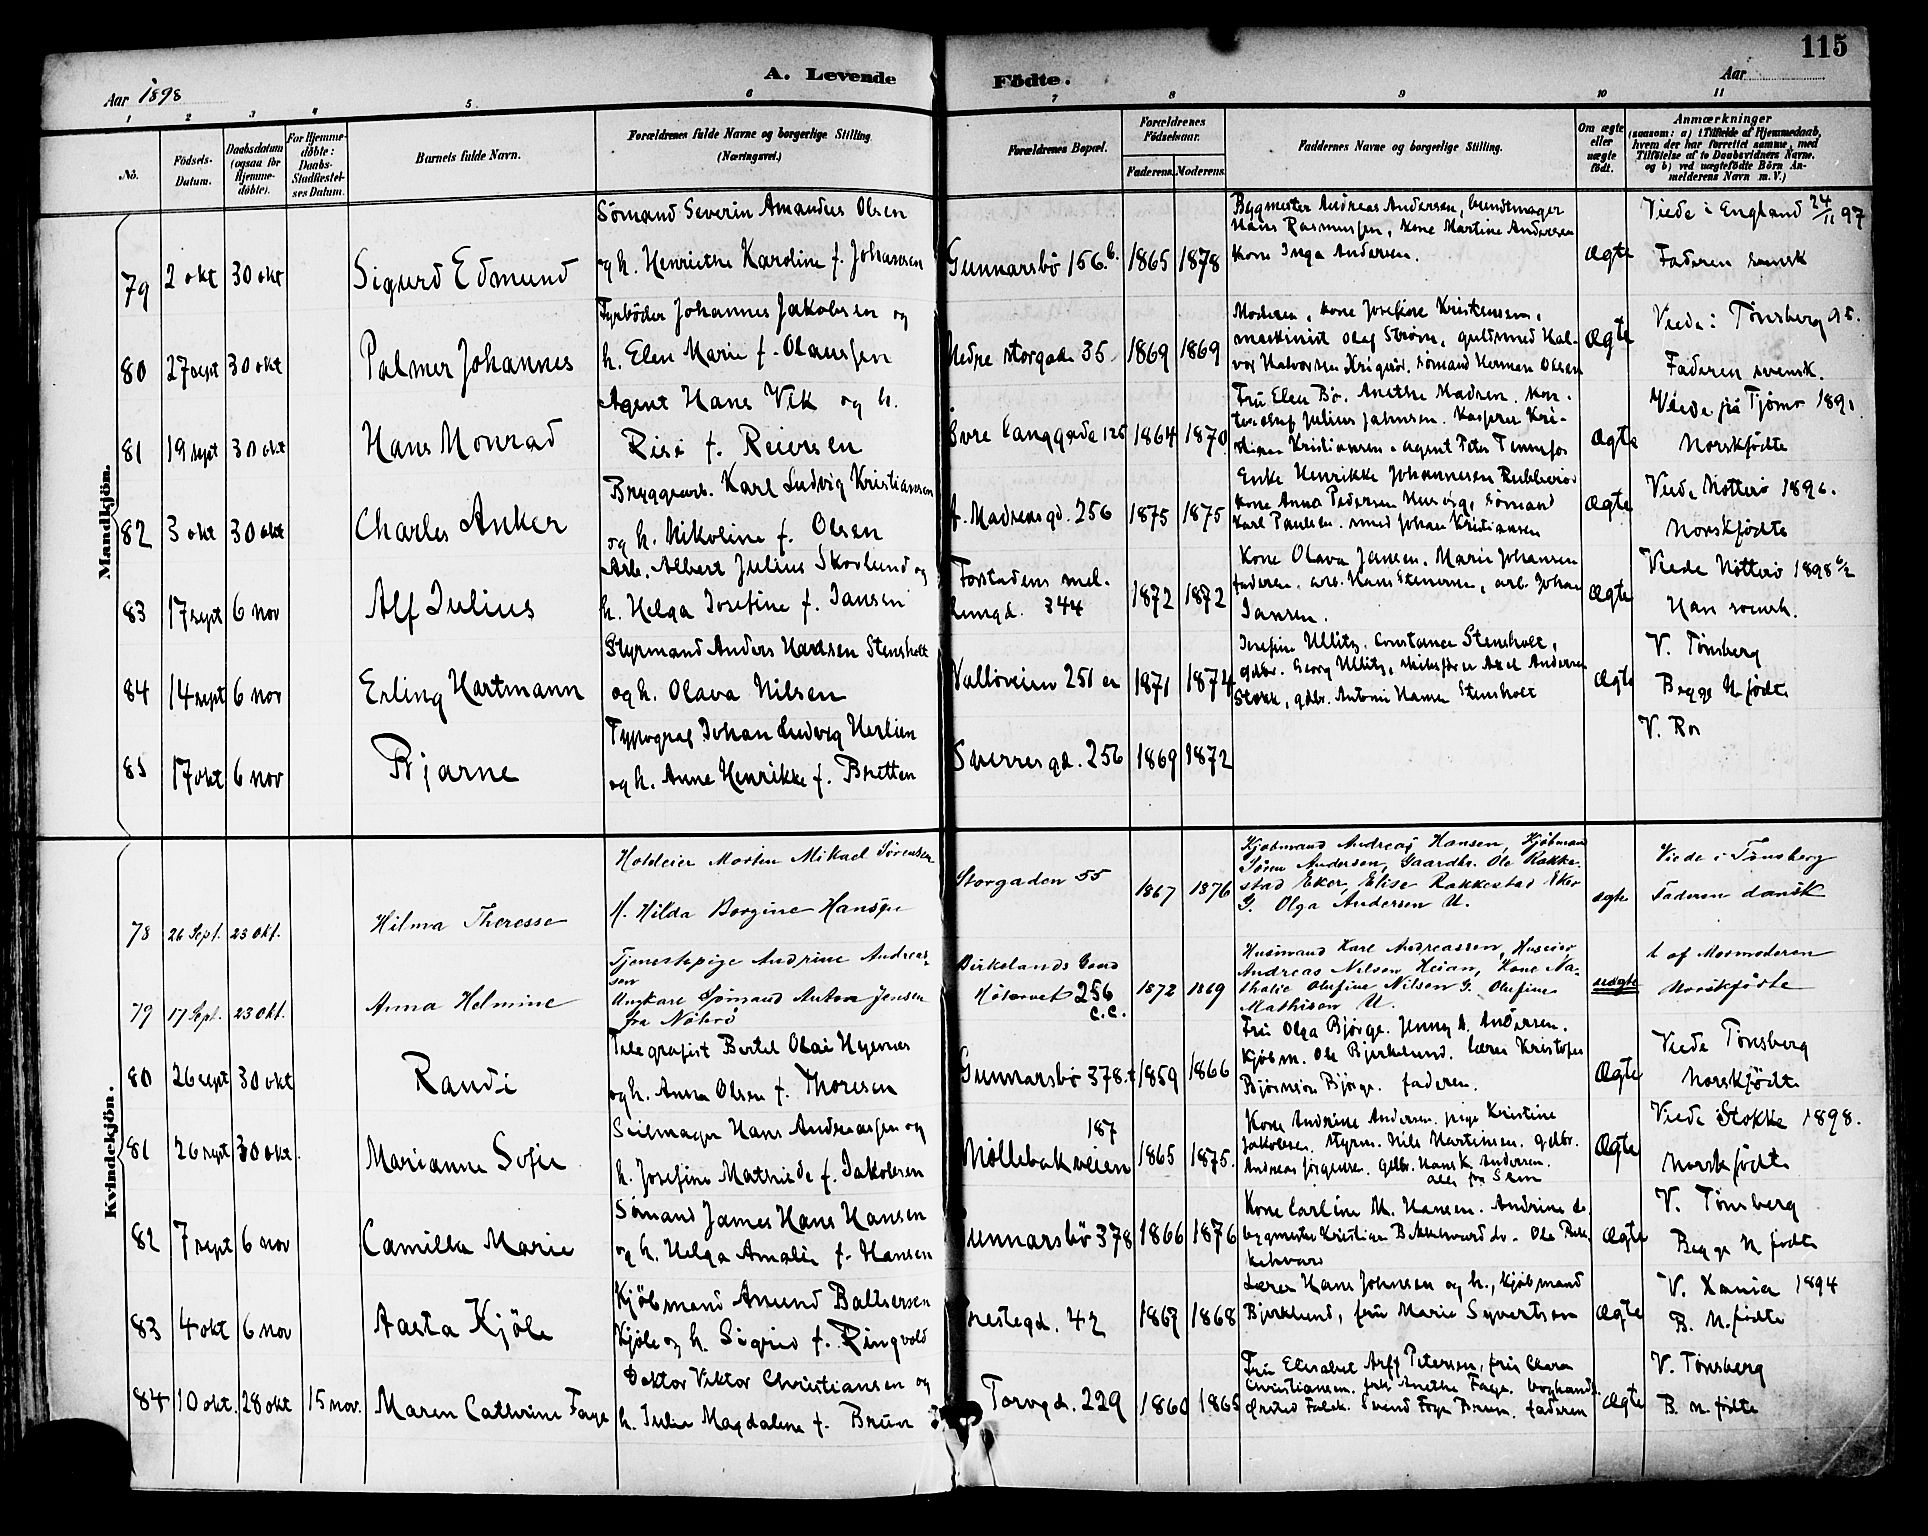 115
A. Levende Födte.
Aar 1898
Aar
1 2 3 4 5 6 7 8 9 10 11
No.
Födsels-Datum.
Daabsdatum (ogsaa for Hjemme-döbte).
For Hjemme-döbte: Daabs-Stadfæstel-ses Datum.
Barnets fulde Navn.
Forældrenes fulde Navne og borgerlige Stilling. (Næringsvei.)
Forældrenes Bopæl.
Forældrenes Födselsaar.
Faderens. Moderens.
Faddernes Navne og borgerlige Stilling.
Om ægte eller uægte født.
Anmærkninger
(saasom: a) i Tilfælde af Hjemmedaab, hvem der har forrettet samme, med Tilföielse af to Daabsvidners Navne, og b) ved uægtefödte Börn An-melderens Navn m. V.)
Mandkjön.
Sømand Severin Amandus Olsen
Bygmester Andreas Andersen, bundtmager
Viede i England 24/11 97
Hans Rasmussen, kone Martine Andersen
79 2 okt 30 okt Sigurd Edmund og h. Henriette Karoline f. Johansen Gunnarsbö 156.b. 1865 1878 Kone Inga Andersen. Ægte Faderen svensk
Fyrböder Johannes Jakobsen og
Moderen, kone Josefine Kristensen,
Viede i Tønsberg 95.
maskinist Olaf Strøm, guldsmed Hal-
80 27 sept 30 okt Palmer Johannes h. Elen Marie f. Olaussen Nedre storgade 35 1869 1869 vor Halvorsen sømand Herman Olsen Ægte Faderen svensk.
Agent Hans Vik og h.
Fru Elen Bø. Anethe Madsen. Kon-
Viede på Tjømø 189
81 19 sept 30 okt Hans Monrad f. Reiersen Øvre Langgade 125 1864 1870 Kristiansen. Agent Peter Ægte Norskfödte
Bryggearb. Karl Ludvig Kristiansen
Enke Henrikke Johannesen
Viede Nötterö 1896.
82 3 okt 30 okt Charles Anker og h. Nikoline f. Olsen A. Madsens gd. 256 1875 1875 Kone Anna Pedersen sömand
Karl Paulsen. smed Johan Kristiansen Ægte Norskfödte
Arb. Albert Julius Skovlund og
Forstadens mel-
Kone Olava Jansen. Marie Johansen
Viede Nötterö 1898 6/2
83 17 sept 6 nov Alf Julius h. Helga Josefine f. Jansen lemgd. 344 1872 1872 faderen. arb. Hans arb. Johan Jansen. Ægte Han svensk.
Styrmand Anders Hansen Stensholt
Josefine Ullitz. Constance Stensholt,
V. Tønsberg
84 14 sept 6 nov Erling Hartmann og h. Olava Nilsen Valløveien 251 1871 1874 gdbr. Georg Ullitz, skibsfører Axel Andersen
gdbr. Antoni Hansen Stensholt Ægte Begge N. födte
Typograf Johan Ludvig Herlien
V. Ro
85 17 okt 6 nov Bjarne og h. Anne Henrikke f. Bretten Sverres gd. 256 1869 1872
Kvindekjön.
Hoteleier Morten Mikael Sørensen
Storgaden 55
Kjøbmand Andreas Hansen, Kjøbmand
Søren Andersen, Gaardbr. Ole Rakke-
stad Eker, Elise Rakkestad Eker
Viede i Tønsberg
78 26 Sept. 23 Okt. Hilma Theresse H. Hilda Borgine Hansen 1867 1876 G. Olga Andersen U. ægte Faderen dansk
Tjenestepige Andrine Andreas-
sen
Birkelands Gaard
Husmand Karl Andreassen, Huseier
Andreas Nilsen Heian, Kone Na-
t. af Mormoderen
79 17 Sept. 23 Okt. Anna Helmine Ungkarl Sømand Anton Jensen fra Nöterö 256 c.c. 1872 1869 thalie Olufine Nilsen G. Olufine
Mathisen U. uægte Norskfödte
Telegrafist Bertel Olai Hyernes
Fru Olga Bjørge. Jenny A. Andersen.
Viede Tønsberg
80 26 sept 30 okt Randi og h. Anna Olsen f. Thoresen Gunnarsbö 378. 1859 1866 Kjöbm. Ole Bjerkelund. lærer Kristofer
Bjørnson Bjørge. faderen. Ægte Norskfödte
Seilmager Hans Andreassen og
187
Kone Andrine Andersen. pige Kristine
Viede i Stokke 1898.
81 26 sept 30 okt. Marianne Sofie h. Josefine Mathilde f. Jakobsen Møllebakveien 1865 1875. Jakobsen. styrm. Nils Martinsen. gdbr.
Andreas Jörgensen. gdbr. Hans K. Andersen.
alle fra Slem Ægte Norskfödte
Sömand James Hans Hansen
Kone Carline M. Hansen. Andrine do
V. Tønsberg
82 7 sept 6 nov Camilla Marie og h. Helga Amalie f. Hansen Gunnarsbö 378 1866 1876 bygmester Kristian do. Ole Ægte Begge N. födte
Kjöbmand Amund Baltsersen
Lærer Hans Johnsen og h., kjöbmand
V. Xania 1894
83 4 okt 6 nov Aasta Kjöle Kjöle og h. Sigrid f. Ringvold Prestegd. 42 1867 1868 Bjerklund, fru Marie Syvertsen Ægte B. N. födte
Doktor Viktor Christiansen og
Fru Elisabet Arff Petersen, fru Clara
V. Tønsberg
84 10 okt. 28 okt 15 nov. Maren Cathrine Faye h. Julie Magdalene f. Bruun Torvgd. 229 1860 1865 Christiansen. frk. Anethe Faye. boghandl.
Falck. Svend Foyn Bruun. faderen Ægte B. N. födte